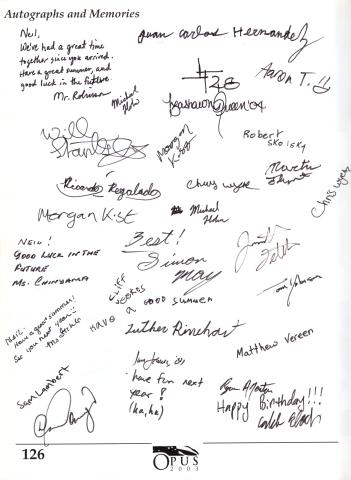 Autographs and Memories
Neil,
We've had a great time
together since you arrived.
Have a great summer, and
good luck in the future.
Mr. Robinson
Juan Carlos Hernandez
#28
Aaron T.
Queen '04
Michael
Will
Morgan
Kist
Robert
Skolsky
Ricardo Regalado
Chris Wyek
Martin
Chris Wyek
Morgan Kist
Michael
Neil!
Good Luck in the
Future
Ms. Chinyama
Best!
Simon
May
Cliff
Have a good summer
Neil:
Have a good summer!
See you next year!
Luther Rinehart
Matthew Vereen
Sam Lambert
have fun next
year!
(ha,ha)
Happy Birthday!!!
Caleb
126
OPUS
2003